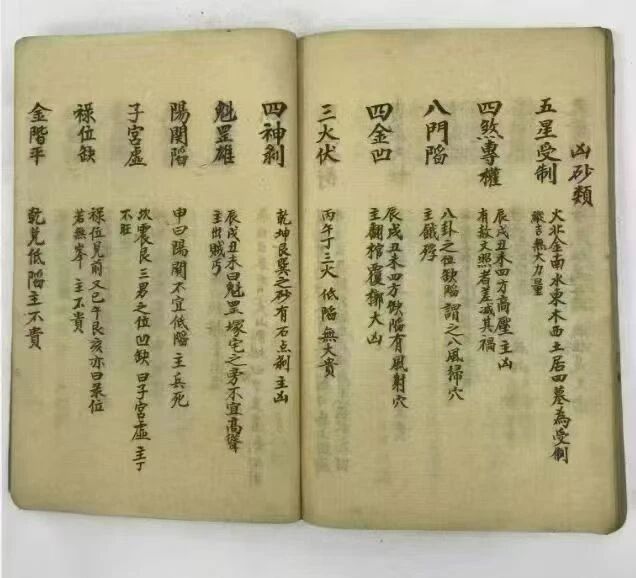 凶砂類
五星受制
火北金南水東木西土居四墓為受制
縱吉無大力量
四煞專權
辰戌丑未四方高壓主凶
有故文照者差減其禍
八門陷
八卦之位缺陷謂之八風掃穴
主餓殍
四金凹
辰戌丑未四方缺陷有風射穴
主翻棺覆槨大凶
三火伏
丙午丁三火低陷無大貴
四神剎
乾坤艮巽之砂有石点剎主凶
魁罡雄
辰戌丑未曰魁罡塚宅之旁不宜高聳
主出賊丐
陽関陷
申曰陽関不宜低陷主兵死
子宮虛
坎震艮三男之位凹缺曰子宮虛主丁
不旺
祿位缺
祿位見前又巳午艮亥亦曰祿位
若無峯主不貴
金階平
乾兌低陷主不貴